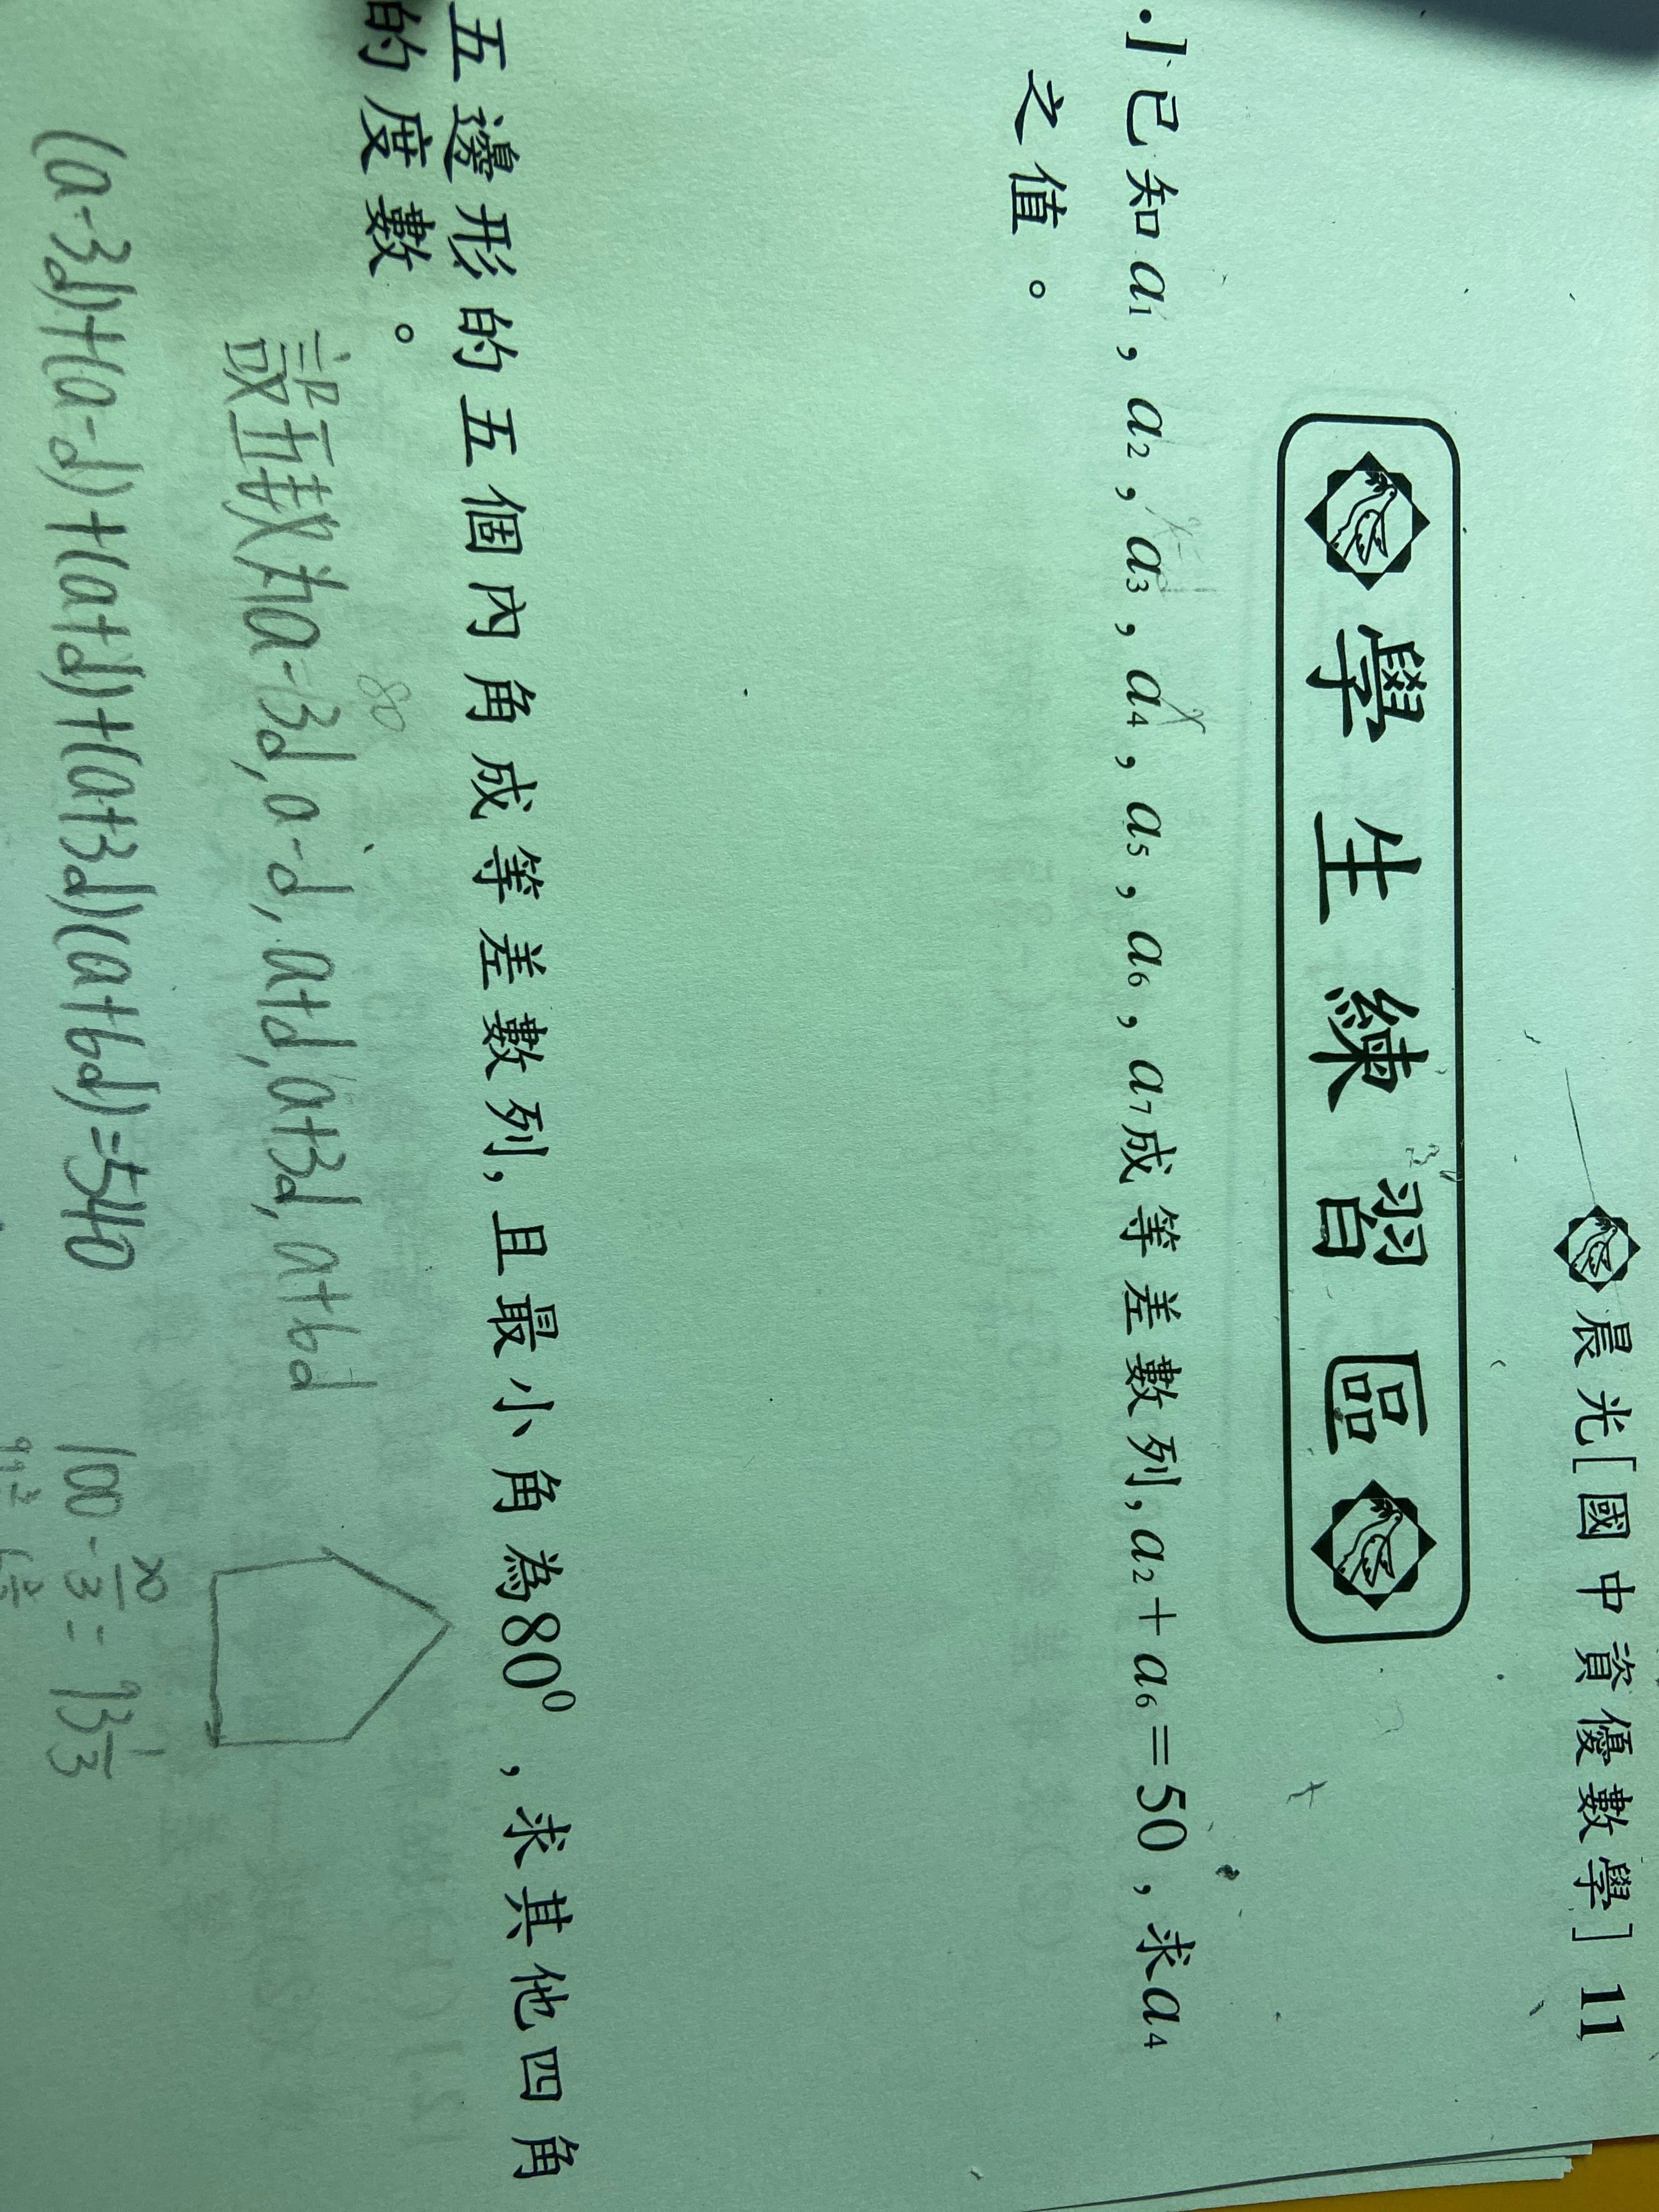 晨光[國中資優數學] 11
學生練習區
.】已知a₁，a₂，a₃，a₄，a₅，a₆，a₇成等差數列，a₂＋a₆＝50，求a₄
之值。
五邊形的五個內角成等差數列，且最小角為80⁰，求其他四角
的度數。
80
設五數為a-3d, a-d, a+d, a+3d, a+6d
(a-3d)+(a-d)+(a+d)+(a+3d)(a+6d)=540
100-20/3=93 1/3